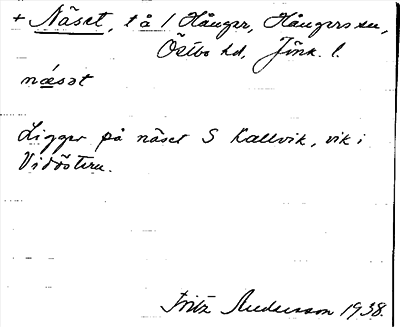 + Näset, t å 1 Hånger, Hångers sn,
Östbo hd, Jönk. l.
næsət
Ligger på näset S Kallvik, vik i
Vidöstern.
Fritz Andersson 1938.